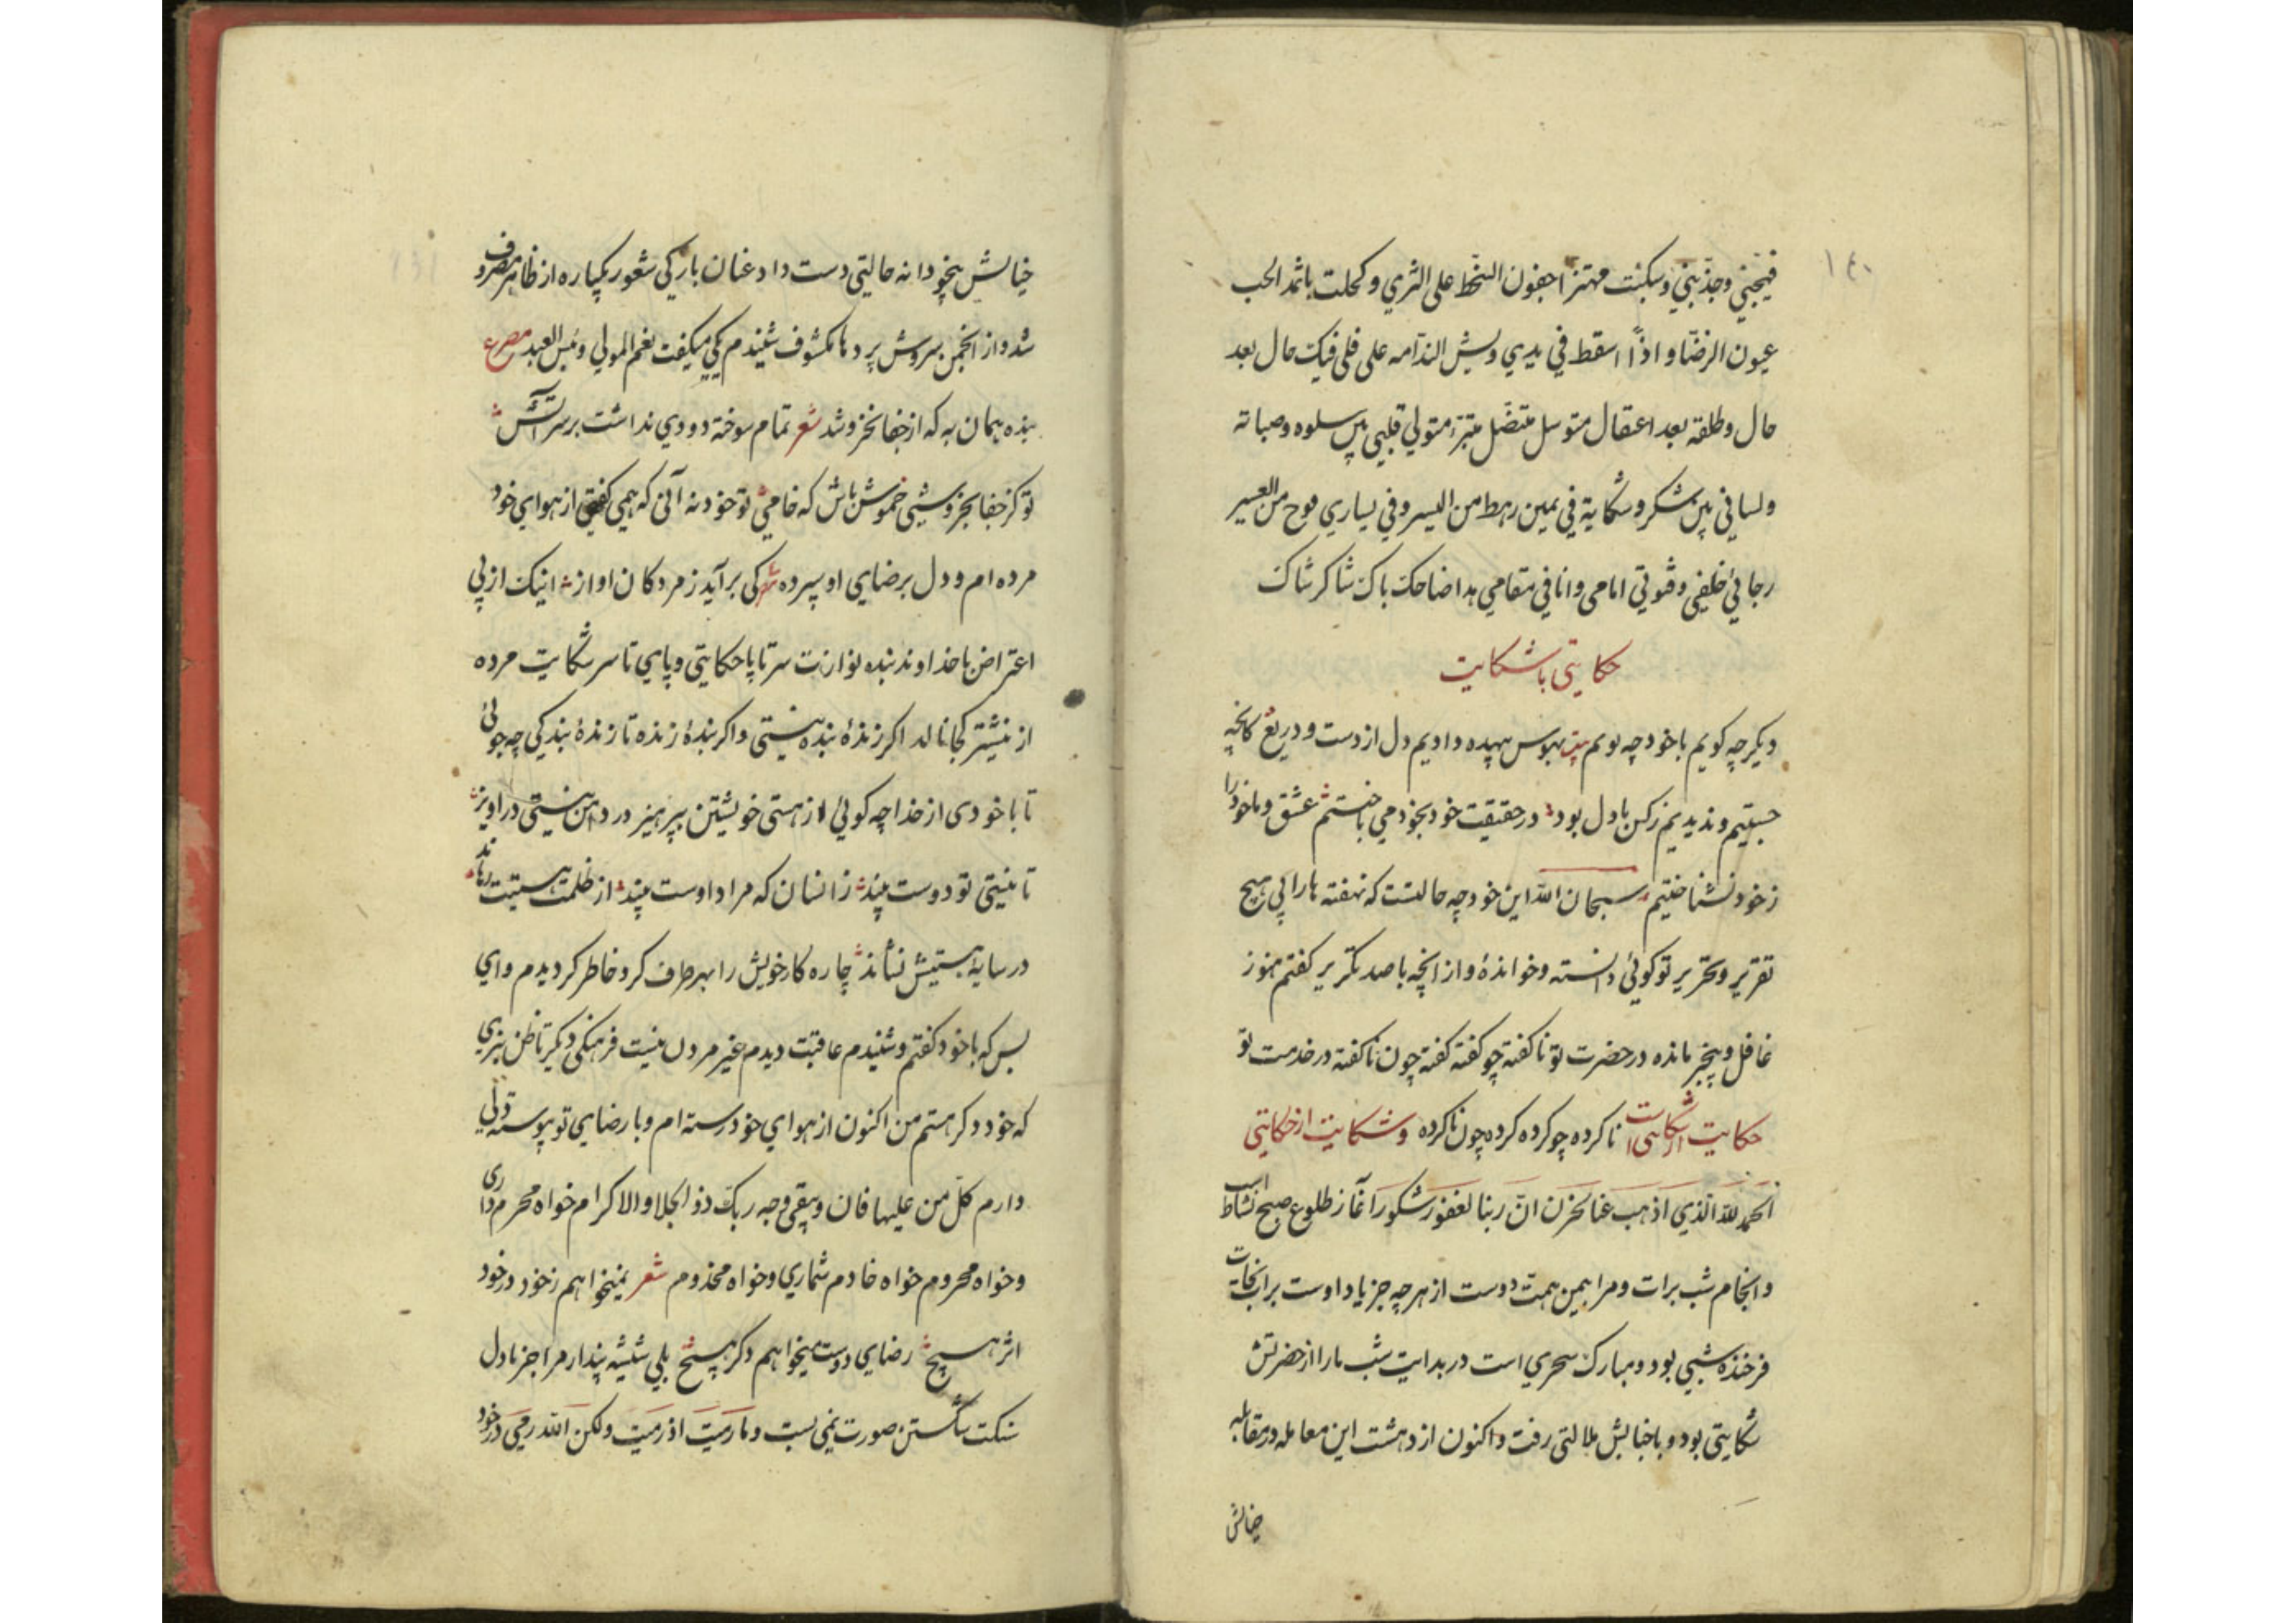 ١٤٠
فيجنبي وجذبني وسكنت مهتزا جفون السخط على الثري وكحلت باثمد الحب
عيون الرضا و اذا اسقط في يدي وبش الندامه على فيك حال بعد
حال وطلقه بعد اعتقال متوسل متصل متبرء متولي قلبي بين سلوه وصبابه
ولساني بين شكر وشكاية في يمين رهط من اليسر وفي يساري فوج من العسير
رجائي خلفي وقوتي امامي وانا في مقامي هذا ضاحك باك شاكر شاك
حكايتى با شكايت
ديكر چه كويم با خود چه بويم بهوس بيهده داديم دل از دست و دريغ كانچه
جستيم و نديديم زكس با دل بود در حقيقت خود بخود مي باختيم عشق و ما خود را
زخود نشناختيم سبحان الله اين خود چه حالتست كه نهفته ما را بي هيچ
تقرير وتحرير تو كوئي دانسته وخوانده و از آنچه با صد تكرير كفتم هنوز
غافل و بيخبر مانده در حضرت تو نا كفته چو كفته كفته چون نا كفته در خدمت تو
نا كرده چو كرده كرده چون نا كرده حكايت شكايت و شكايت از حكايتى
الحمد لله الذي اذهب عنا الحزن ان ربنا لغفور شكور آغاز طلوع صبح نشاط است
و انجام شب برات و مرا بيمن همت دوست از هر چه جز ياد اوست برات نجات
فرخنده شبي بود و مبارك سحري است در بدايت شب ما را از حضرتش
شكايتي بود و با خيالش ملالتي رفت و اكنون از دهشت اين معامله در مقابله
خيالش
خيالش بيخودانه حالتي دست داد عنان باركي شعور يكباره از ظاهر مصروف
شد و از انجمن سروش پرده ها مكشوف شنيدم يكي ميكفت نعم المولي و بئس العبد مصرع
بنده همان به كه از جفا نخروشد شعر تمام سوخته دودي نداشت بر سر آتش
تو كز جفا بخروشيي خموش باش كه خامي تو خود نه آني كه همي كفتي از هواي خود
مرده ام و دل برضاي او سپرده شعر كى بر آيد ز مردكان آواز اينك از پي
اعتراض با خداوند بنده نوازت سر تا پا حكايتي و پاي تا سر شكايت مرده
از نيشتر كجا نالد اكر زنده بنده نيستي و اكر بنده زنده تا زنده بندكي چه جوئي
تا با خودى از خدا چه كوئي از هستى خويشتن بپرهيز در دامن نيستي در آويز
تا نيستي تو دوست بيند ز انسان كه مراد اوست بيند از ظلمت هستيت رهاند
در سايه هستيش نشاند چاره كار خويش را بهر طرف كرد خاطر كرديدم و اي
بس كه با خود كفتم و شنيدم عاقبت ديدم غير مردن نيست فرهنگي ديكر تا ظن نبري
كه خود دكر هستم من اكنون از هواي خود رسته ام و با رضاي تو پيوسته قولي
دارم كل من عليها فان و يبقى وجه ربك ذو الجلال و الاكرام خواه محرم دارى
و خواه محروم خواه خادم شماري و خواه مخدوم شعر نميخواهم ز خود در خود
اثر هيچ رضاي دوست ميخواهم دكر هيچ بلي شيشه پندار مرا جز با دل
سنكت شكستن صورت نمي بست و ما رميت اذ رميت ولكن الله رمى در خود